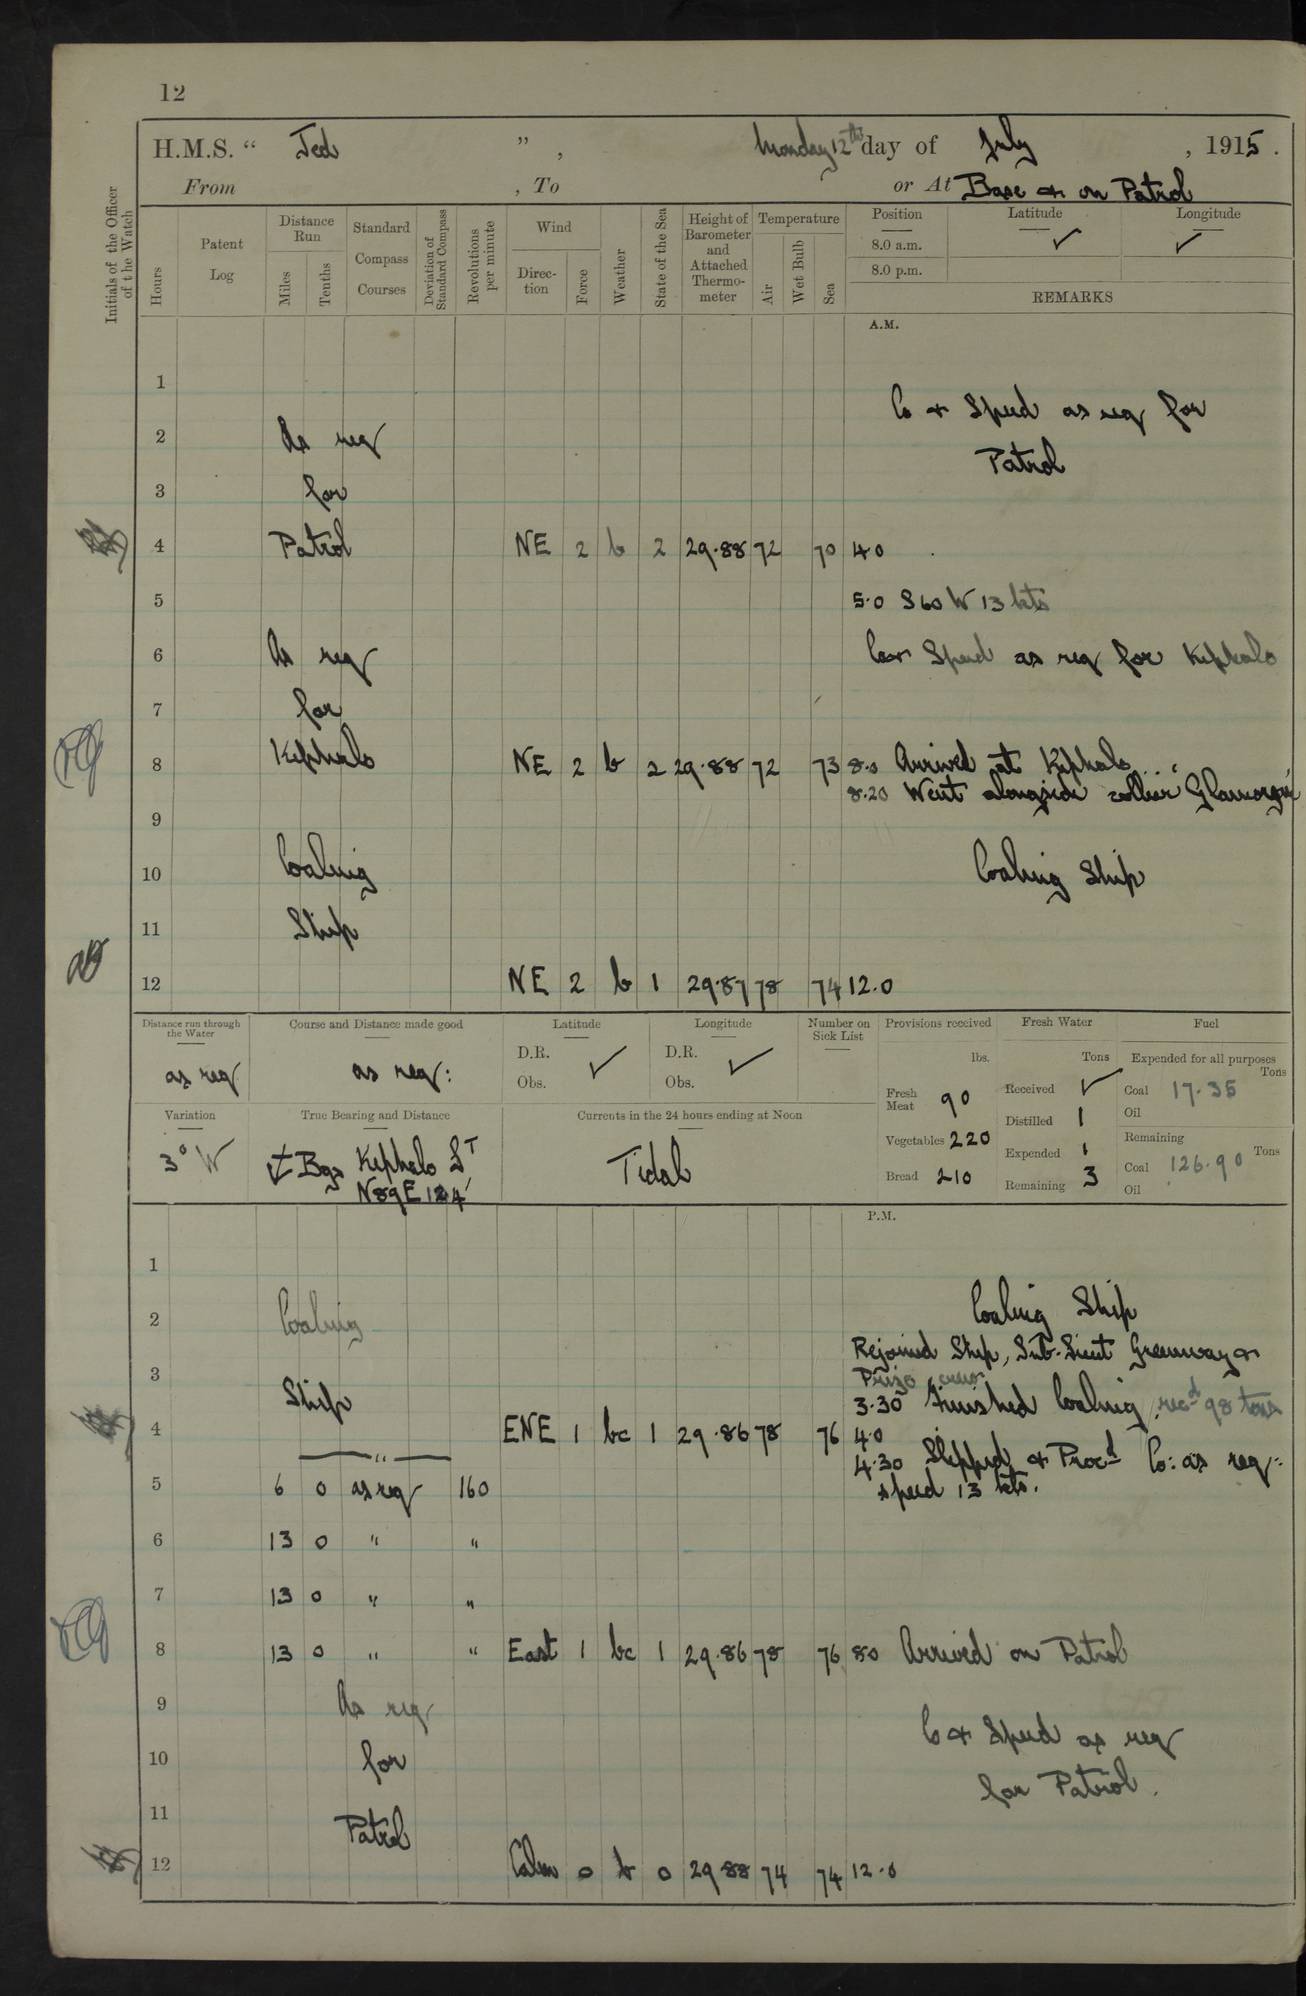 12
H.M.S. “ Jed ” , Monday 12th day of July , 1915 .
From , To or At Base & on Patrol
Initials of the Officer of the Watch
Hours
Patent Log
Distance Run
Miles
Tenths
Standard Compass Courses
Deviation of Standard Compass
Revolutions per minute
Wind
Direc-tion
Force
Weather
State of the Sea
Height of Barometer and Attached Thermo-meter
Temperature
Air
Wet Bulb
Sea
Position Latitude Longitude
8.0 a.m. ✓ ✓
8.0 p.m.
REMARKS
A.M.
1
Co & Speed as req for
2 As req
Patrol
3 for
4 Patrol NE 2 b 2 29.88 72 70 4.0
5 5.0 S 60 W 13 kts
6 As req Co & Speed as req for Kephalo
7 for
8 Kephalo NE 2 b 2 29.88 72 73 8.0 Arrived at Kephalo
8.20 Went alongside collier
9
10 Coaling Coaling Ship
11 Ship
12 NE 2 b 1 29.87 78 74 12.0
Distance run through the Water
as req
Course and Distance made good
as req:
Latitude
D.R. ✓
Obs.
Longitude
D.R. ✓
Obs.
Number on Sick List
Provisions received
lbs.
Fresh Meat 90
Vegetables 220
Bread 210
Fresh Water
Tons
Received ✓
Distilled 1
Expended 1
Remaining 3
Fuel
Expended for all purposes
Tons
Coal 17.35
Oil
Remaining
Tons
Coal 126.90
Oil
Variation
3° W
True Bearing and Distance
Bgs Kephalo Lt
N89E
Currents in the 24 hours ending at Noon
Tidal
P.M.
1
2 Coaling Coaling Ship
Rejoined Ship, Sub-Lieut Greenway &
3 Prize crew
Ship 3.30 Finished Coaling, recd 98 tons
4 ENE 1 bc 1 29.86 78 76 4.0
" 4.30 Slipped & Procd Co: as req:
5 6 0 as req 160 speed 13 kts.
6 13 0 " "
7 13 0 " "
8 13 0 " " East 1 bc 1 29.86 78 76 8.0 Arrived on Patrol
9 As req
C & Speed as req
10 for
for Patrol.
11
Patrol
12 Calm 0 b 0 29.88 74 74 12.0